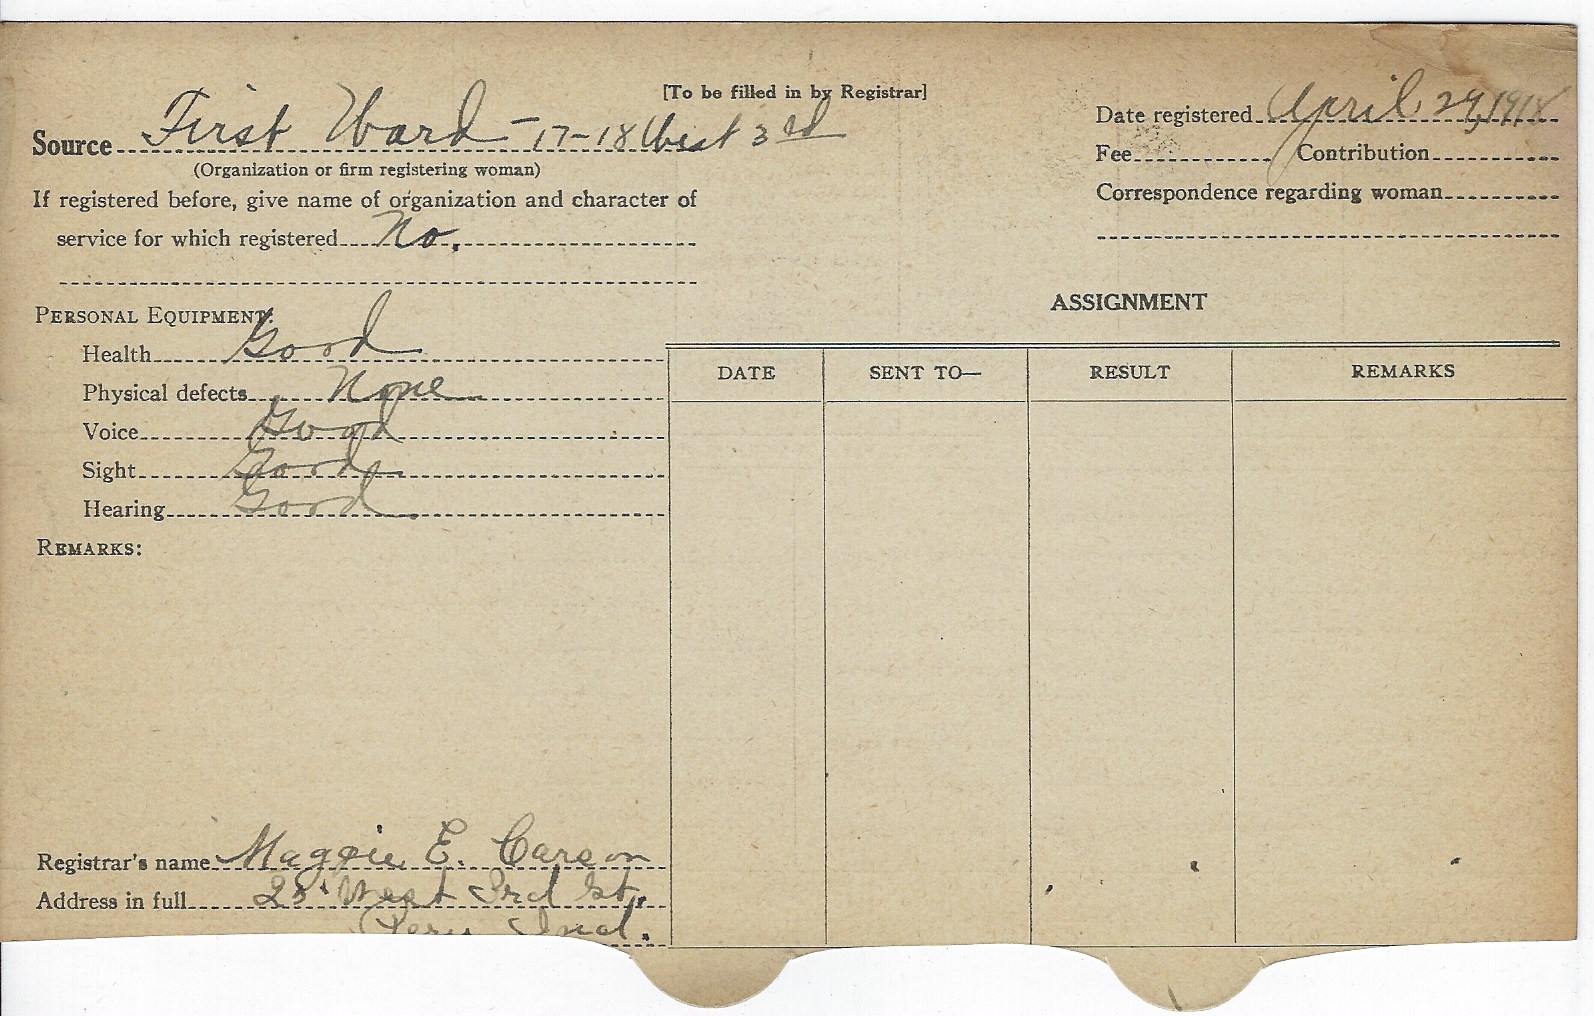 [To be filled in by Registrar]
Source First Ward - 17-18 West 3rd
(Organization or firm registering woman)
If registered before, give name of organization and character of
service for which registered No.
Date registered April 29, 1918
Fee Contribution
Correspondence regarding woman
PERSONAL EQUIPMENT:
Health Good
Physical defects None
Voice Good
Sight Good
Hearing Good
REMARKS:
ASSIGNMENT
DATE SENT TO— RESULT REMARKS
Registrar's name Maggie E. Carson
Address in full 25 West 3rd St.,
Peru Ind.